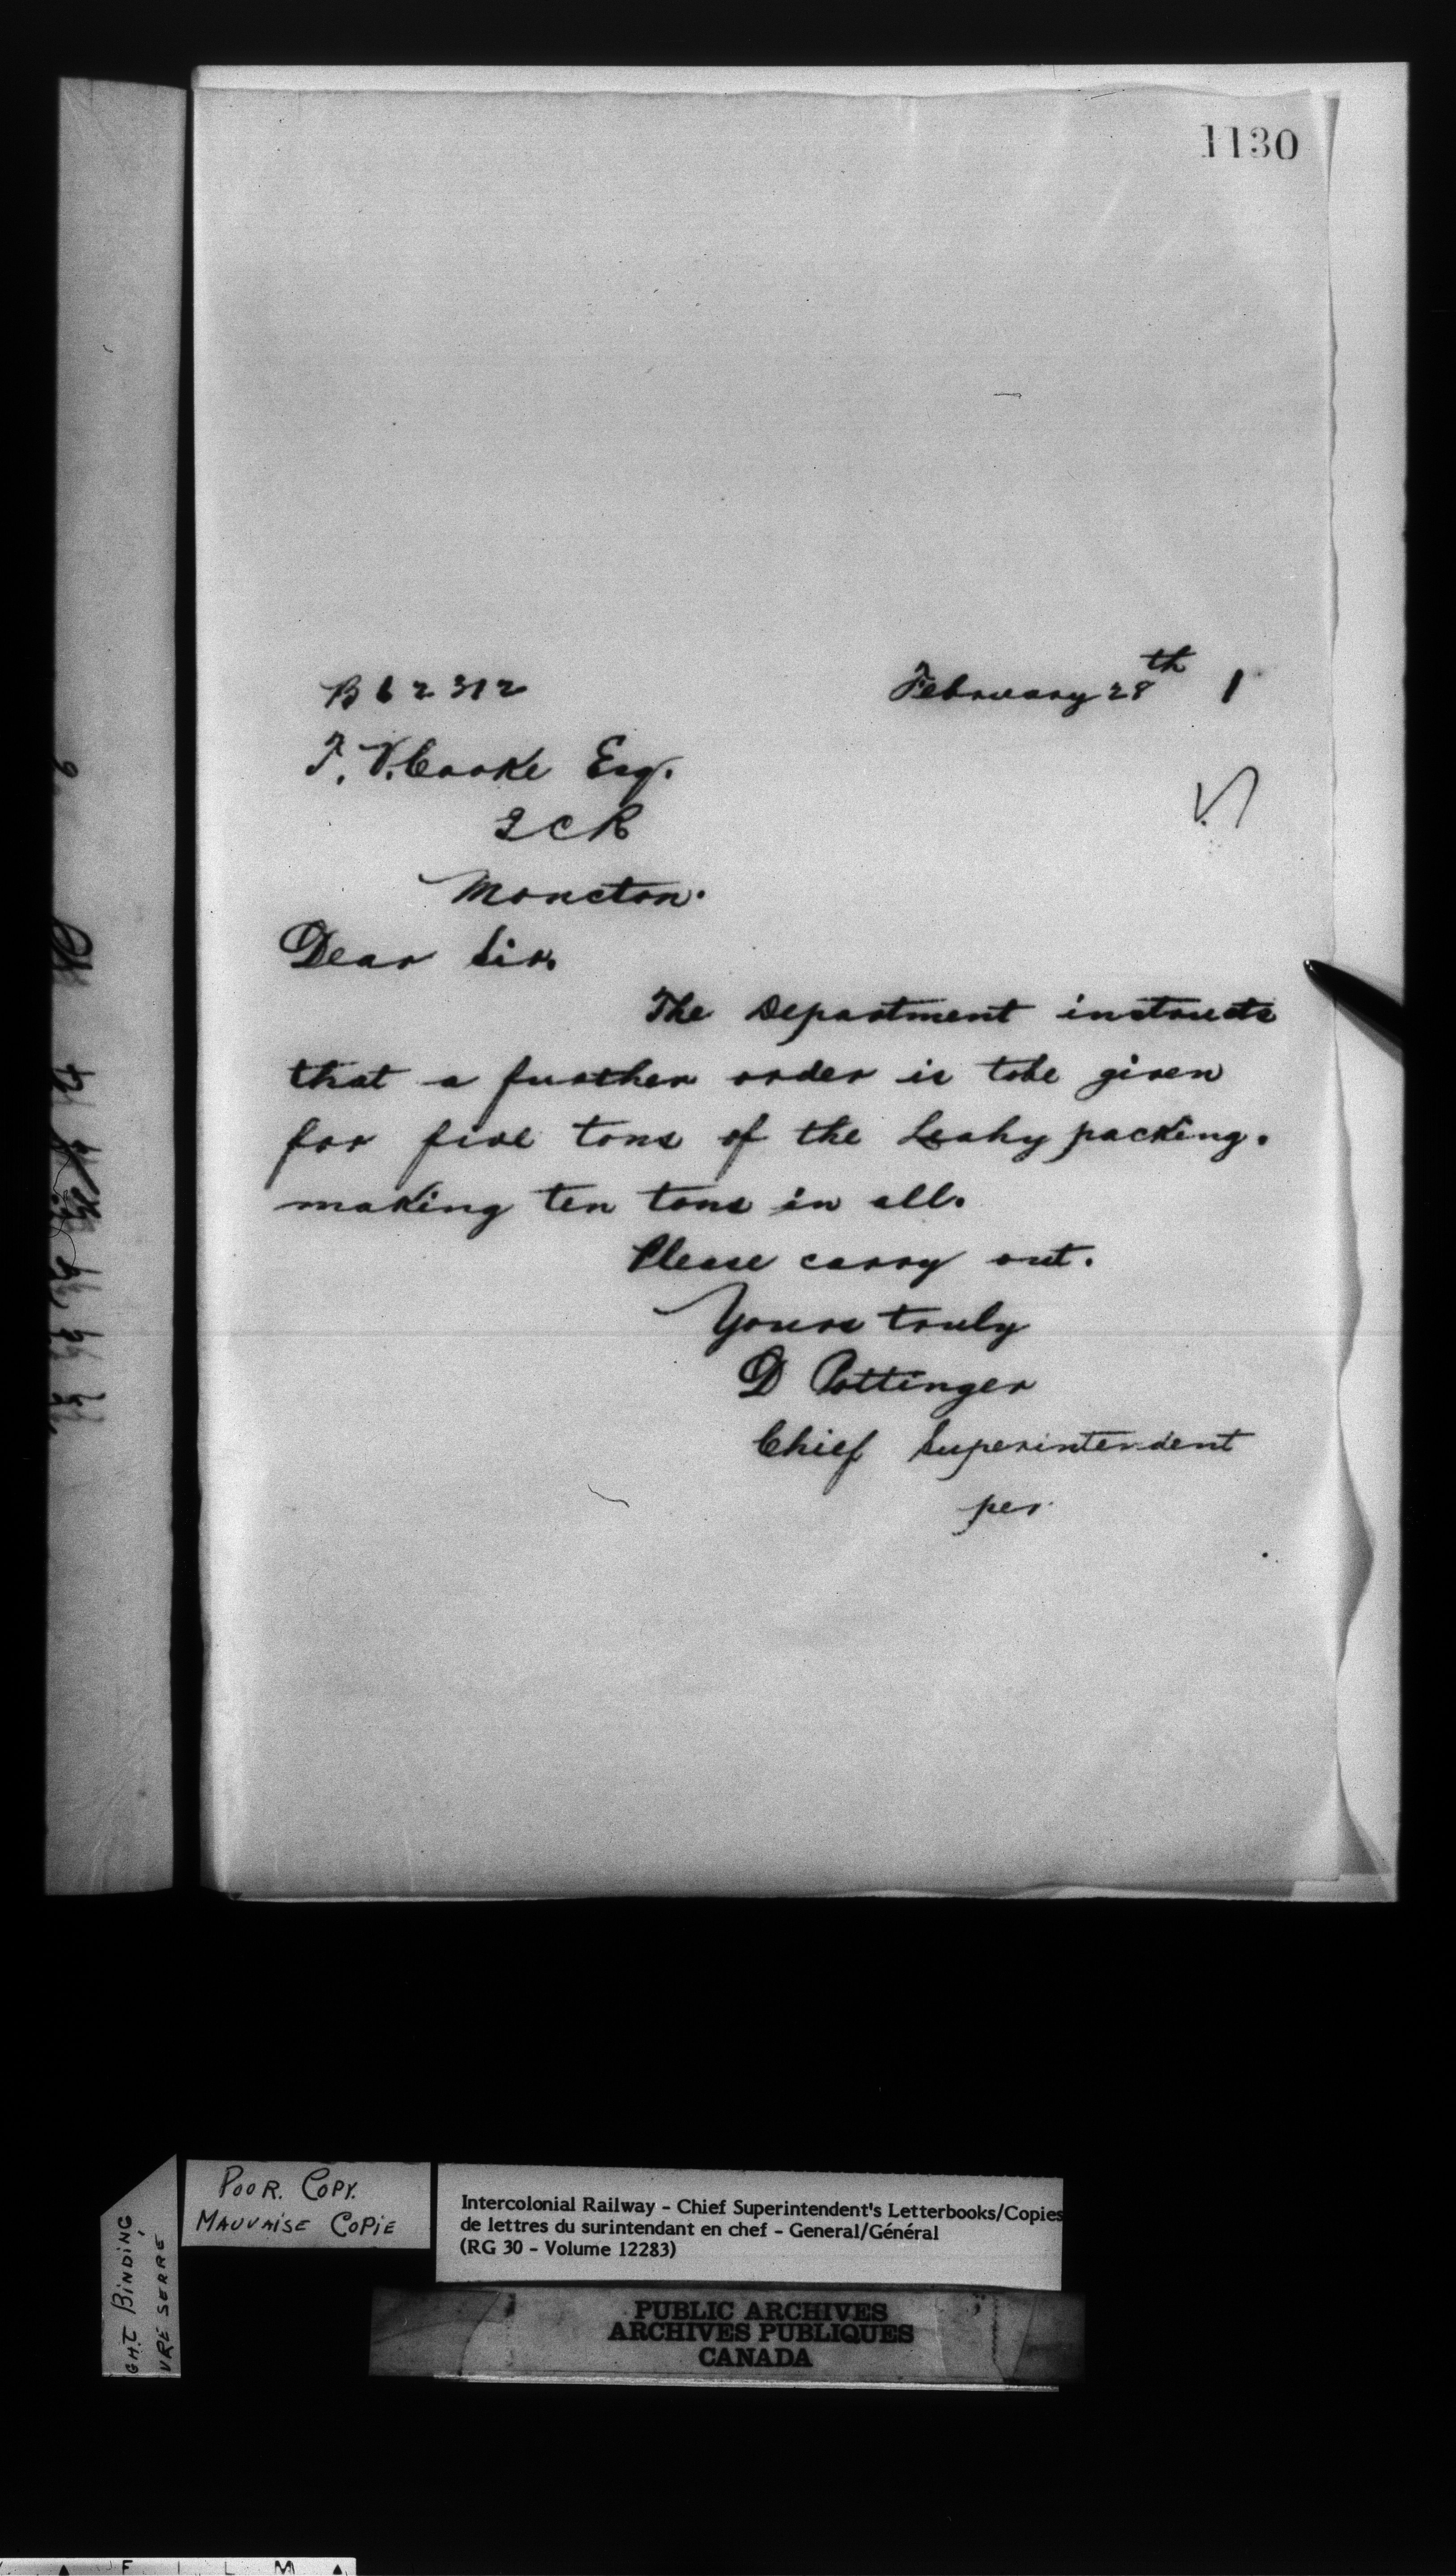 1130
B 62312 February 28th 1
T. V. Cooke Esq.
ICR
Moncton.
Dear Sir.
The Department instructs
that a further order is to be given
for five tons of the Leahy packing.
making ten tons in all.
Please carry out.
Yours truly
D Pottinger
Chief Superintendent
per
POOR. COPY.
MAUVAISE COPIE
GHT BINDING
VRE SERRÉ
Intercolonial Railway - Chief Superintendent's Letterbooks/Copies
de lettres du surintendant en chef - General/Général
(RG 30 - Volume 12283)
PUBLIC ARCHIVES
ARCHIVES PUBLIQUES
CANADA